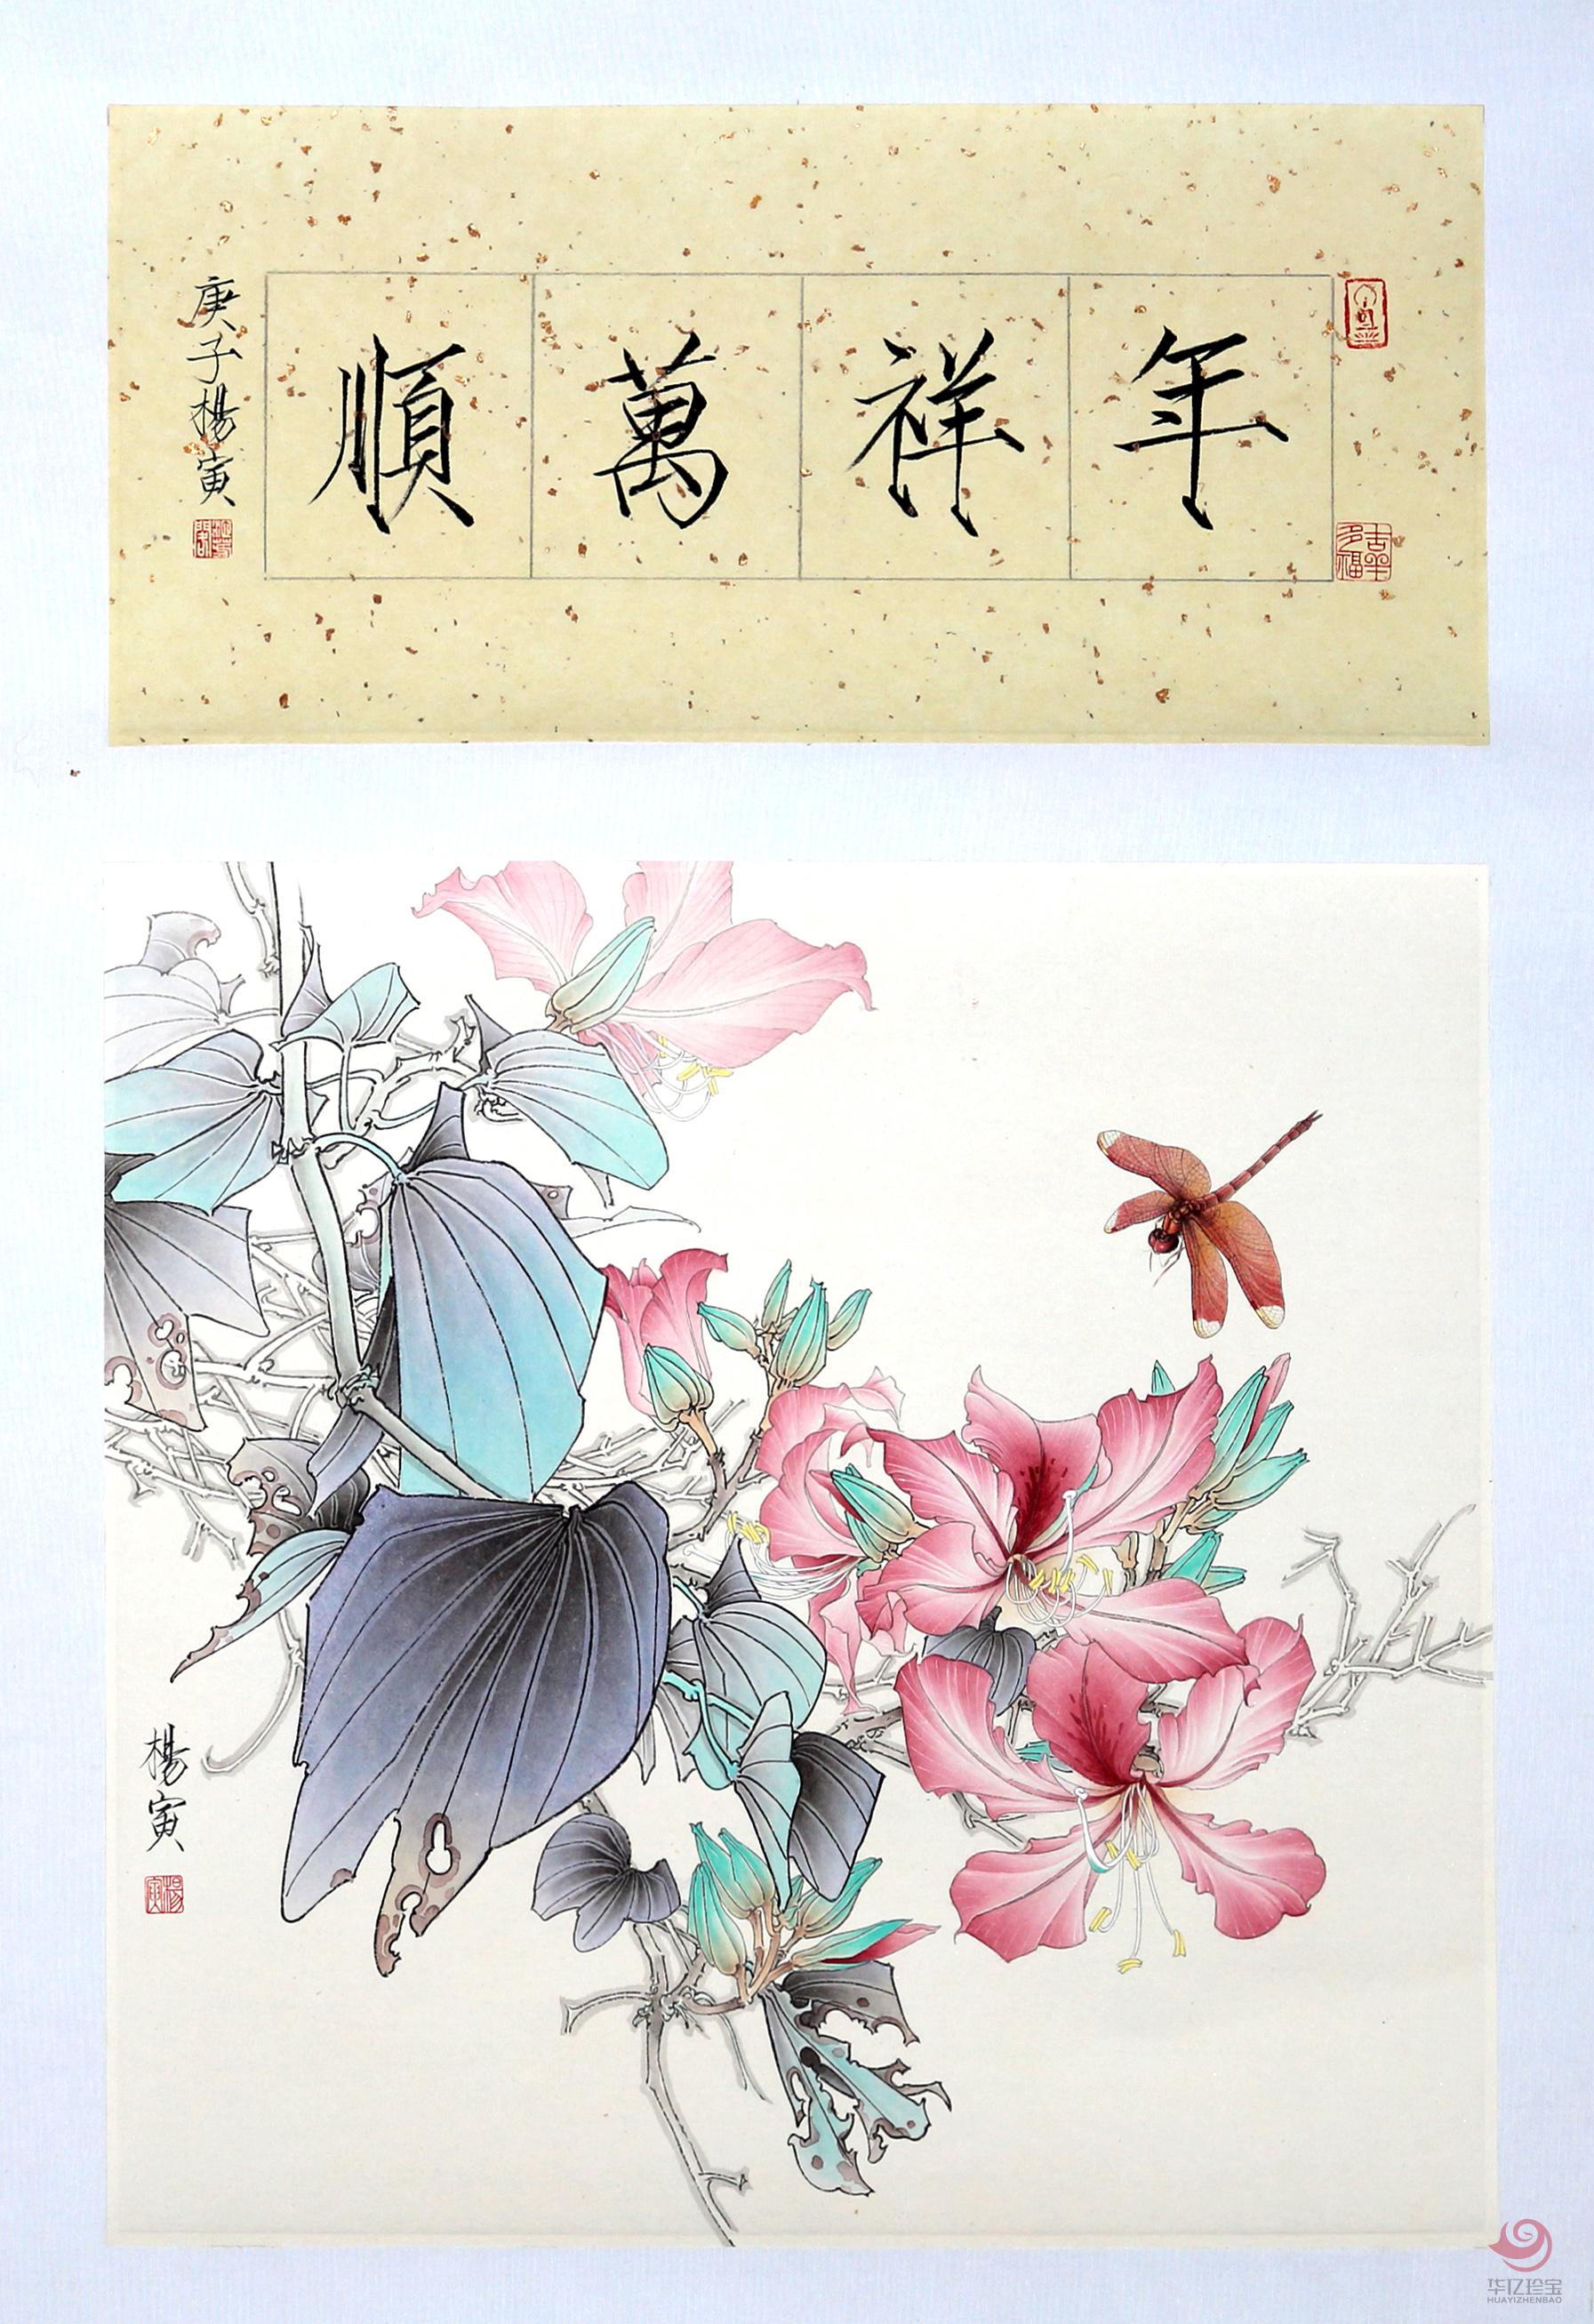 年祥萬順
吉羊多福
庚子楊寅
楊寅
楊寅
华亿珍宝
HUAYIZHENBAO